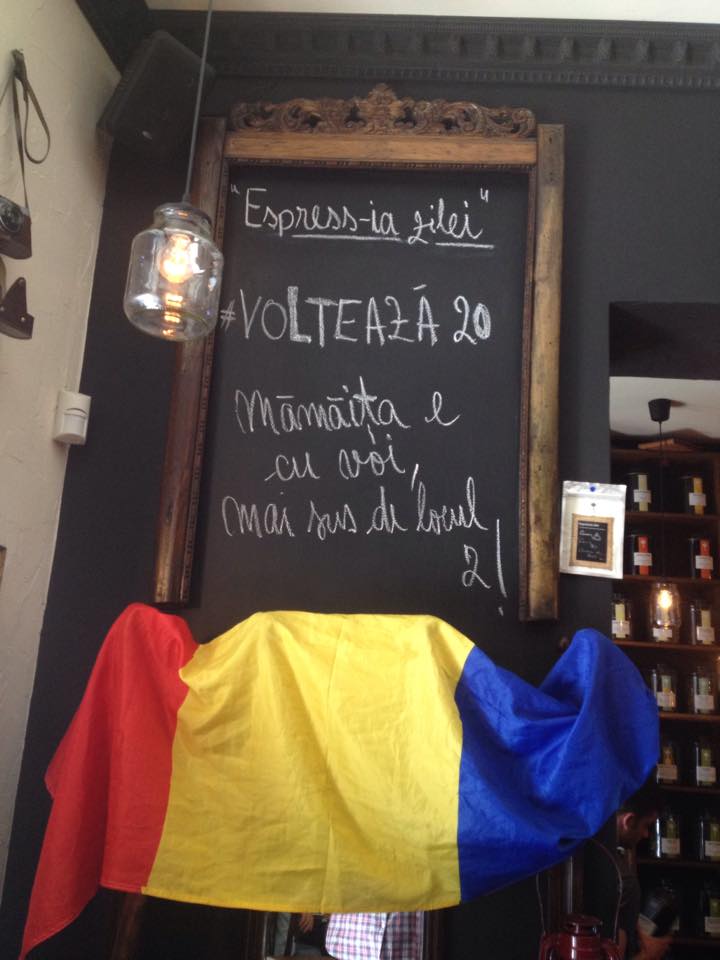 "Espress-ia zilei"
#VOLTEAZĂ 20
Mămăița e
cu voi,
mai sus de locul
2!